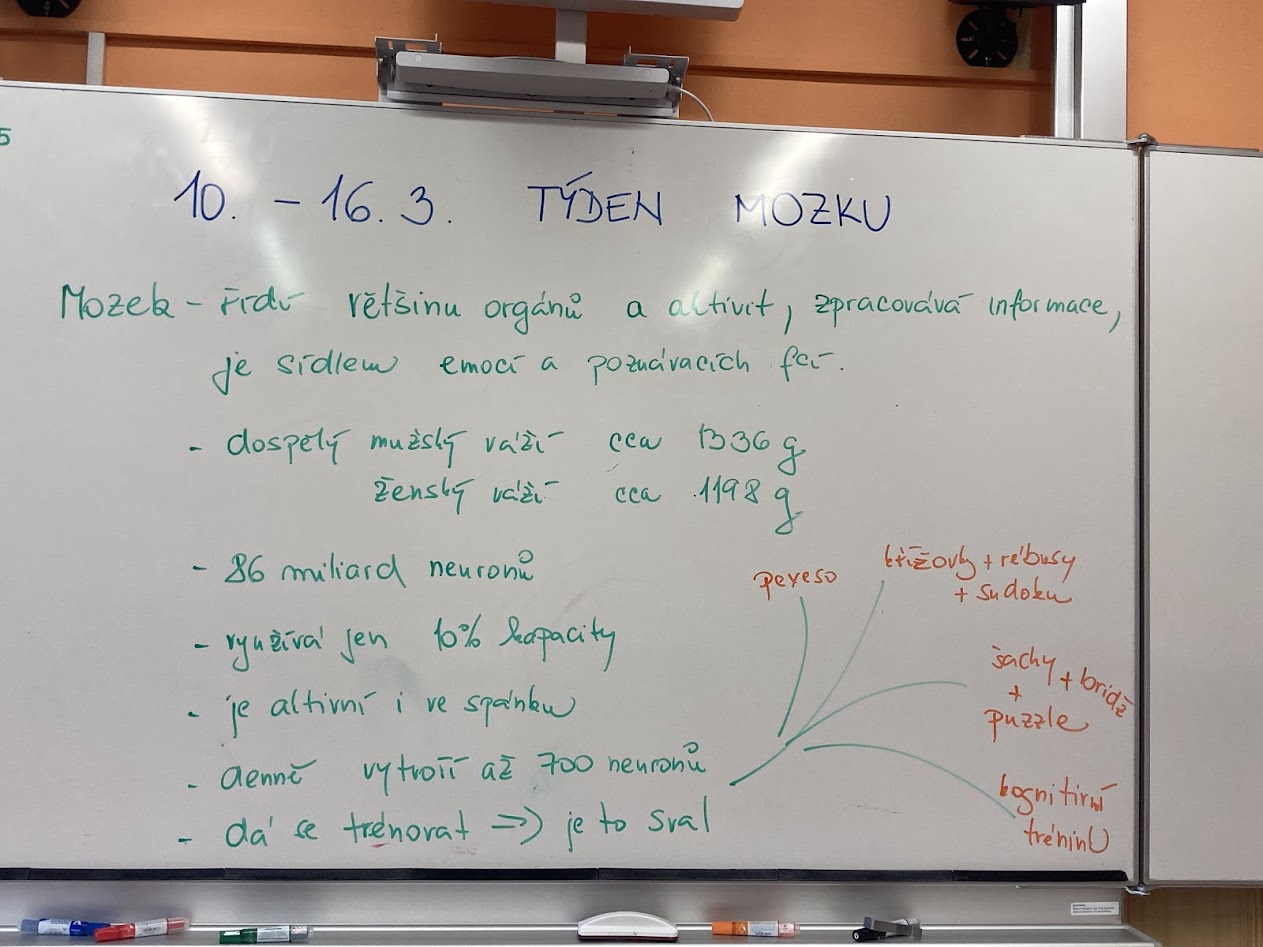 5
10. - 16. 3. TÝDEN MOZKU
Mozek - řídí většinu orgánů a aktivit, zpracovává informace,
je sídlem emocí a poznávacích fcí.
- dospělý mužský váží cca 1336 g
ženský váží cca 1198 g
- 86 miliard neuronů
- využívá jen 10% kapacity
- je aktivní i ve spánku
- denně vytvoří až 700 neuronů
- dá se trénovat => je to sval
pexeso
křížovky + rébusy
+ sudoku
šachy + bridž
+
puzzle
kognitivní
trénink